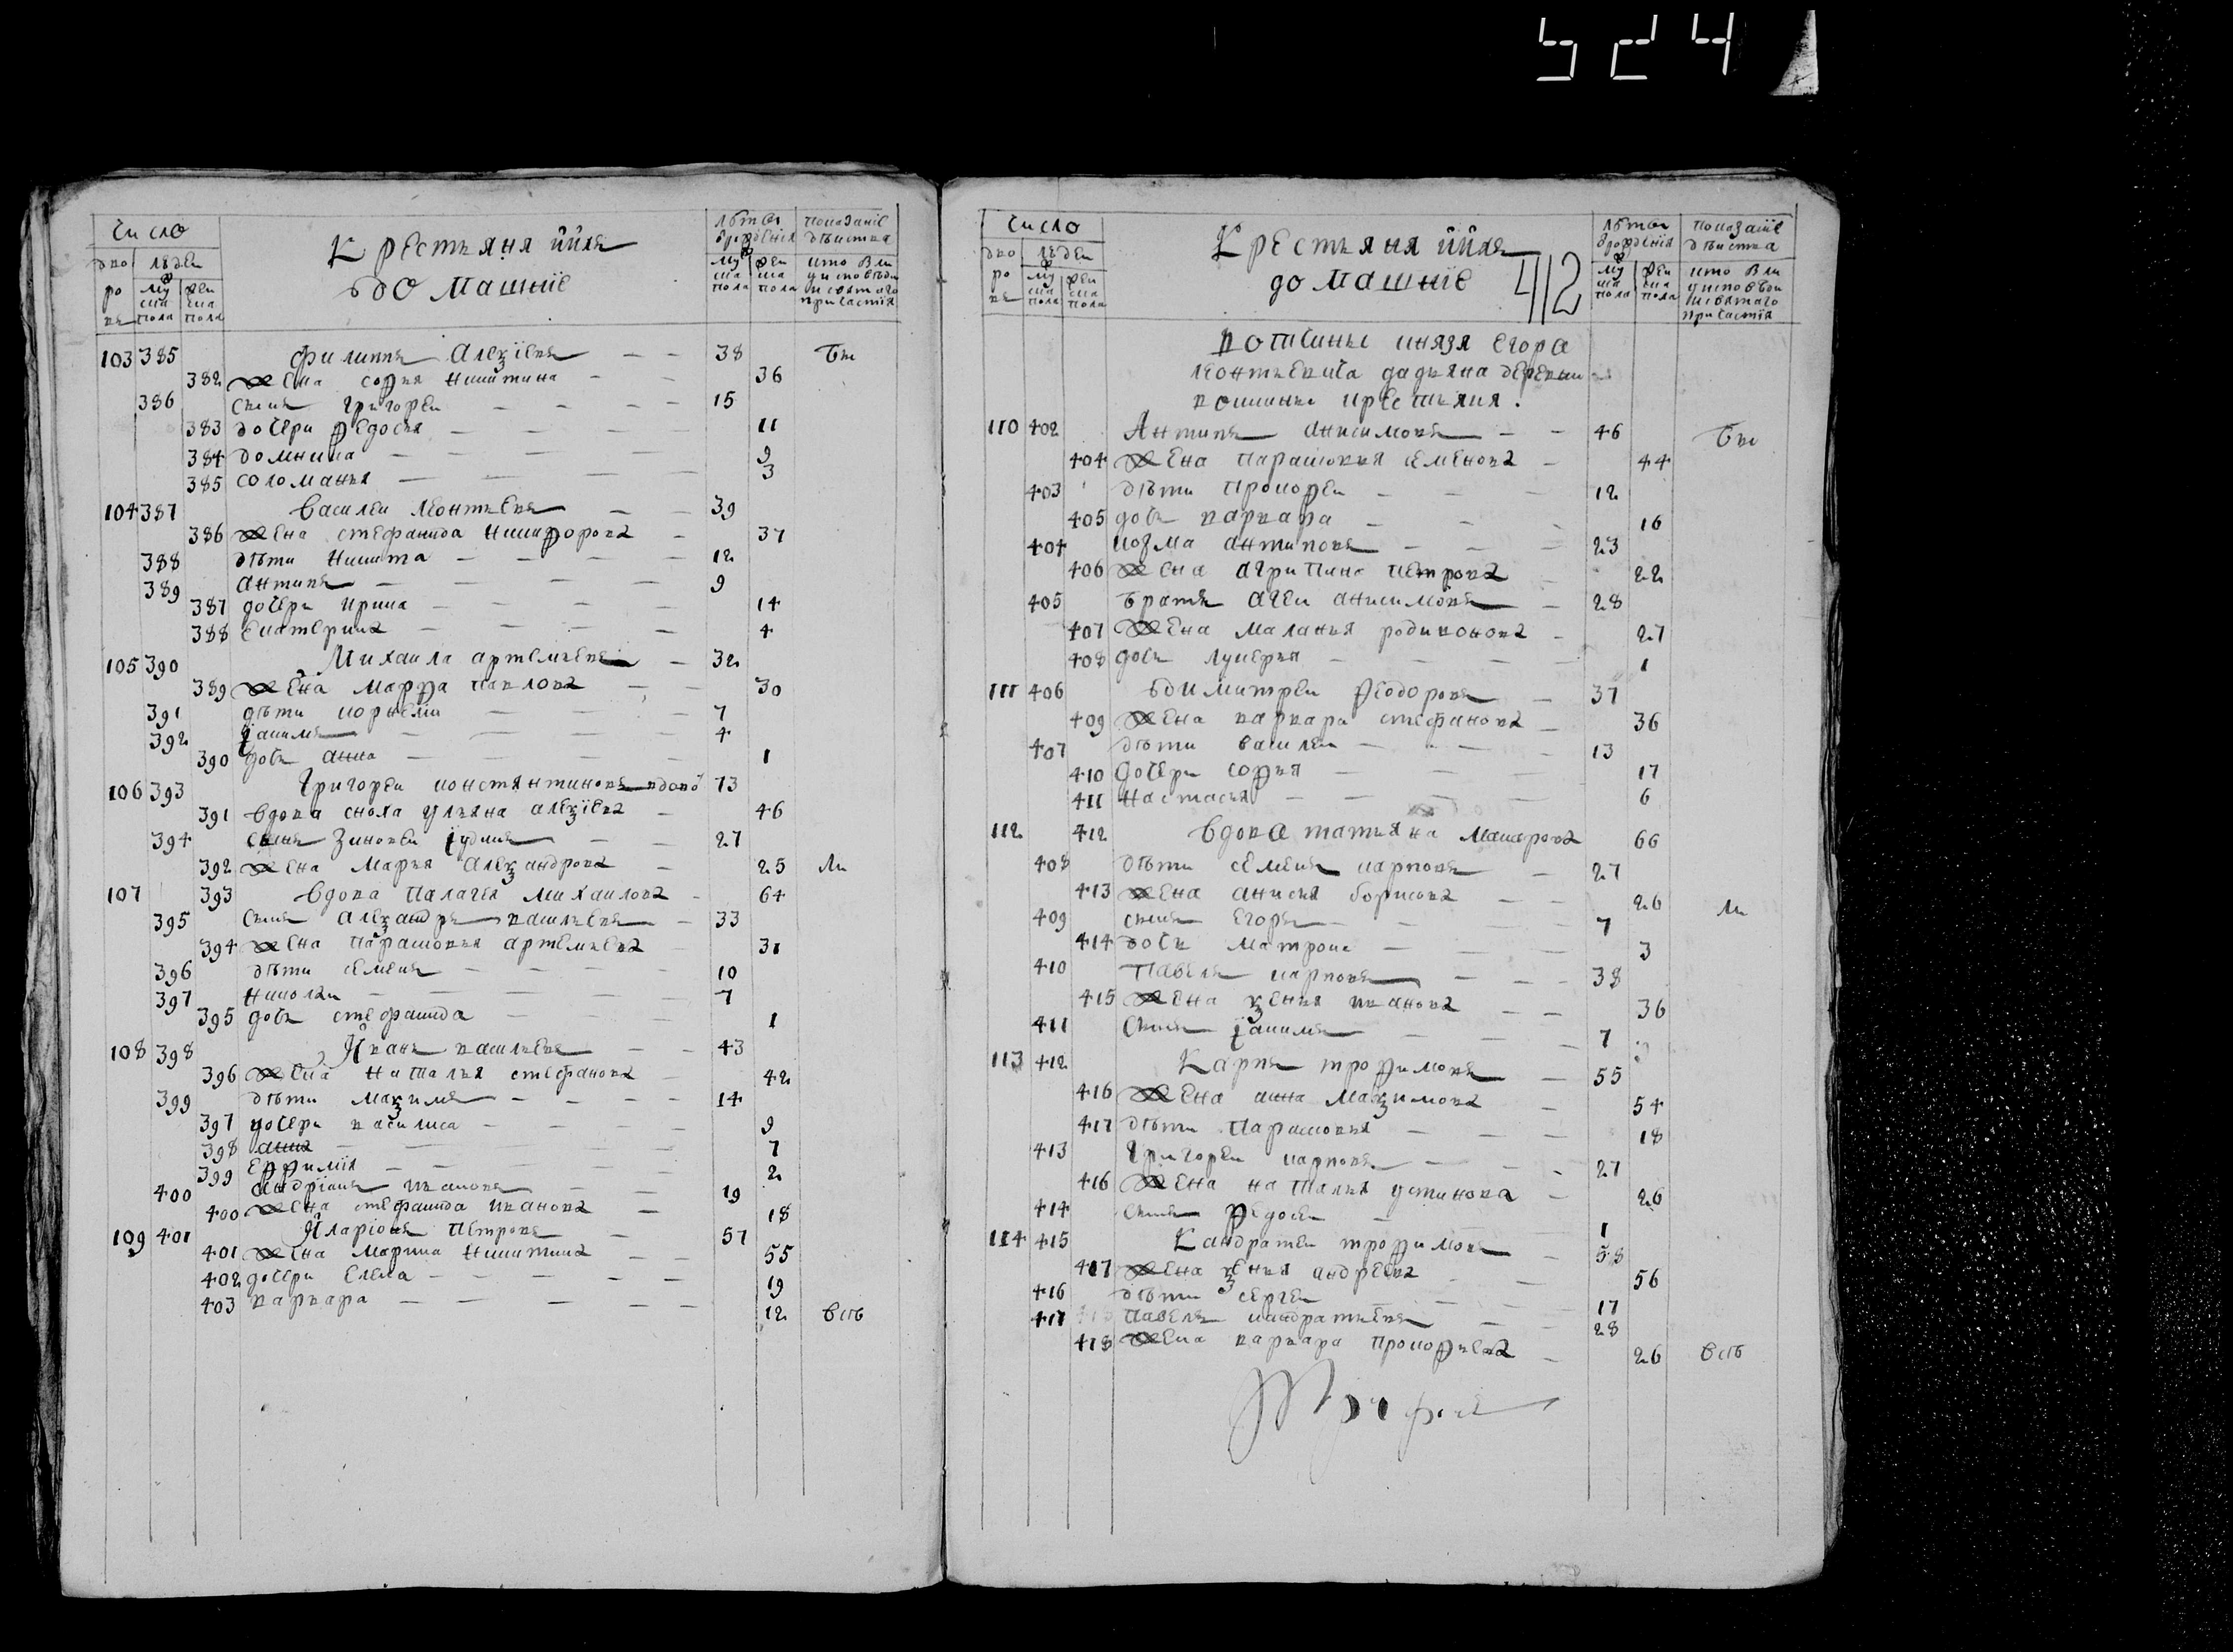 524
Число
Крестьяня ихъ
домашніе
Лѣта от рожденія
Показаніе действа
дворовъ
людей
мужеска пола
женска пола
мужеска пола
женска пола
кто был у исповеди и святаго причастія
103 385 Филиппъ Алеѯіевъ — — 38 Бы
382 жена Софья Никитина — — 36
386 сынъ Григореи — — — — 15
383 дочери Федосья — — — 11
384 Домникиа — — — 9
385 Соломанья — — — 3
104 387 Василеи Леонтьевъ — — 39
386 жена Стефанида Никифорова — 37
388 дѣти Никита — — — — 12
389 Антипъ — — — — 9
387 дочери Ирина — — — — 14
388 Екатерина — — — — 4
105 390 Михаила Артемьевъ — 32
389 жена Марфа Павлова — — 30
391 дѣти Корнелiи — — — 7
392 Іакимъ — — — — 4
390 дочь Анна — — — — 1
106 393 Григореи Константиновъ вдовъ 73
391 вдова сноха Ульяна Алеѯіева — 46
394 сынъ Зиновеи Іудинъ — — 27
392 жена Марья Алеѯандрова — 25 Ли
107 393 Вдова Палагея Михаилова — 64
395 сынъ Алеѯандръ Васильевъ — 33
394 жена Парасковья Артемьева — 31
396 дѣти Семенъ — — — — 10
397 Николаи — — — — 7
395 дочь Стефанида — — — 1
108 398 Иванъ Васильевъ — — 43
396 жена Наталья Стефанова — 42
399 дѣти Маѯимъ — — — — 14
397 дочери Василиса — — — 9
398 Анна — — — — 7
399 Еффимія — — — — 2
400 Андріанъ Ивановъ — — 19
400 жена Стефанида Иванова — 18
109 401 Иларіонъ Петровъ — 57
401 жена Марина Никитина — — 55
402 дочери Елена — — — — 19
403 Варвара — — — — 12 всѣ
Число
Крестьяня ихъ
домашніе
412
Лѣта от рожденія
Показаніе действа
дворовъ
людей
мужеска пола
женска пола
мужеска пола
женска пола
кто был у исповеди и святаго причастія
Вотчины князя Егора
Леонтьевича Дадьяна деревни
крестьяня.
110 402 Антипъ Анисимовъ — — 46 Бы
404 жена Парасковья Семенова — 44
403 дѣти Прокофеи — — — 12
405 дочь Варвара — — — 16
404 Козма Антиповъ — — — 23
406 жена Агрипина Петрова — 22
405 братъ Агеи Анисимовъ — 28
407 жена Маланья Родивонова — 27
408 дочь Лукерья — — — — 1
111 406 Димитреи Феодоровъ — 37
409 жена Варвара Стефанова — 36
407 дѣти Василеи — — — — 13
410 дочери Софья — — — 17
411 Настасья — — — — 6
112 412 Вдова Татьяна Макарова 66
408 дѣти Семенъ Карповъ — 27
413 жена Анисья Борисова — — 26 Ли
409 сынъ Егоръ — — — — 7
414 дочь Матрона — — — 3
410 Павелъ Карповъ — — — 38
415 жена Ѯенья Иванова — — 36
411 сынъ Іакимъ — — — 7
113 412 Карпъ Трофимовъ — 55
416 жена Анна Маѯимова — 54
417 дѣти Парасковья — — — 18
413 Григореи Карповъ — — 27
416 жена Наталья Устинова — 26
414 сынъ Федосеи — 1
114 415 Кандратеи Трофимовъ — 58
417 жена Ѯенья Андреева — — 56
416 дѣти Сергеи — — — 17
417 Павелъ Кандратьевъ — — 28
418 жена Варвара Прокофьева — 26 всѣ